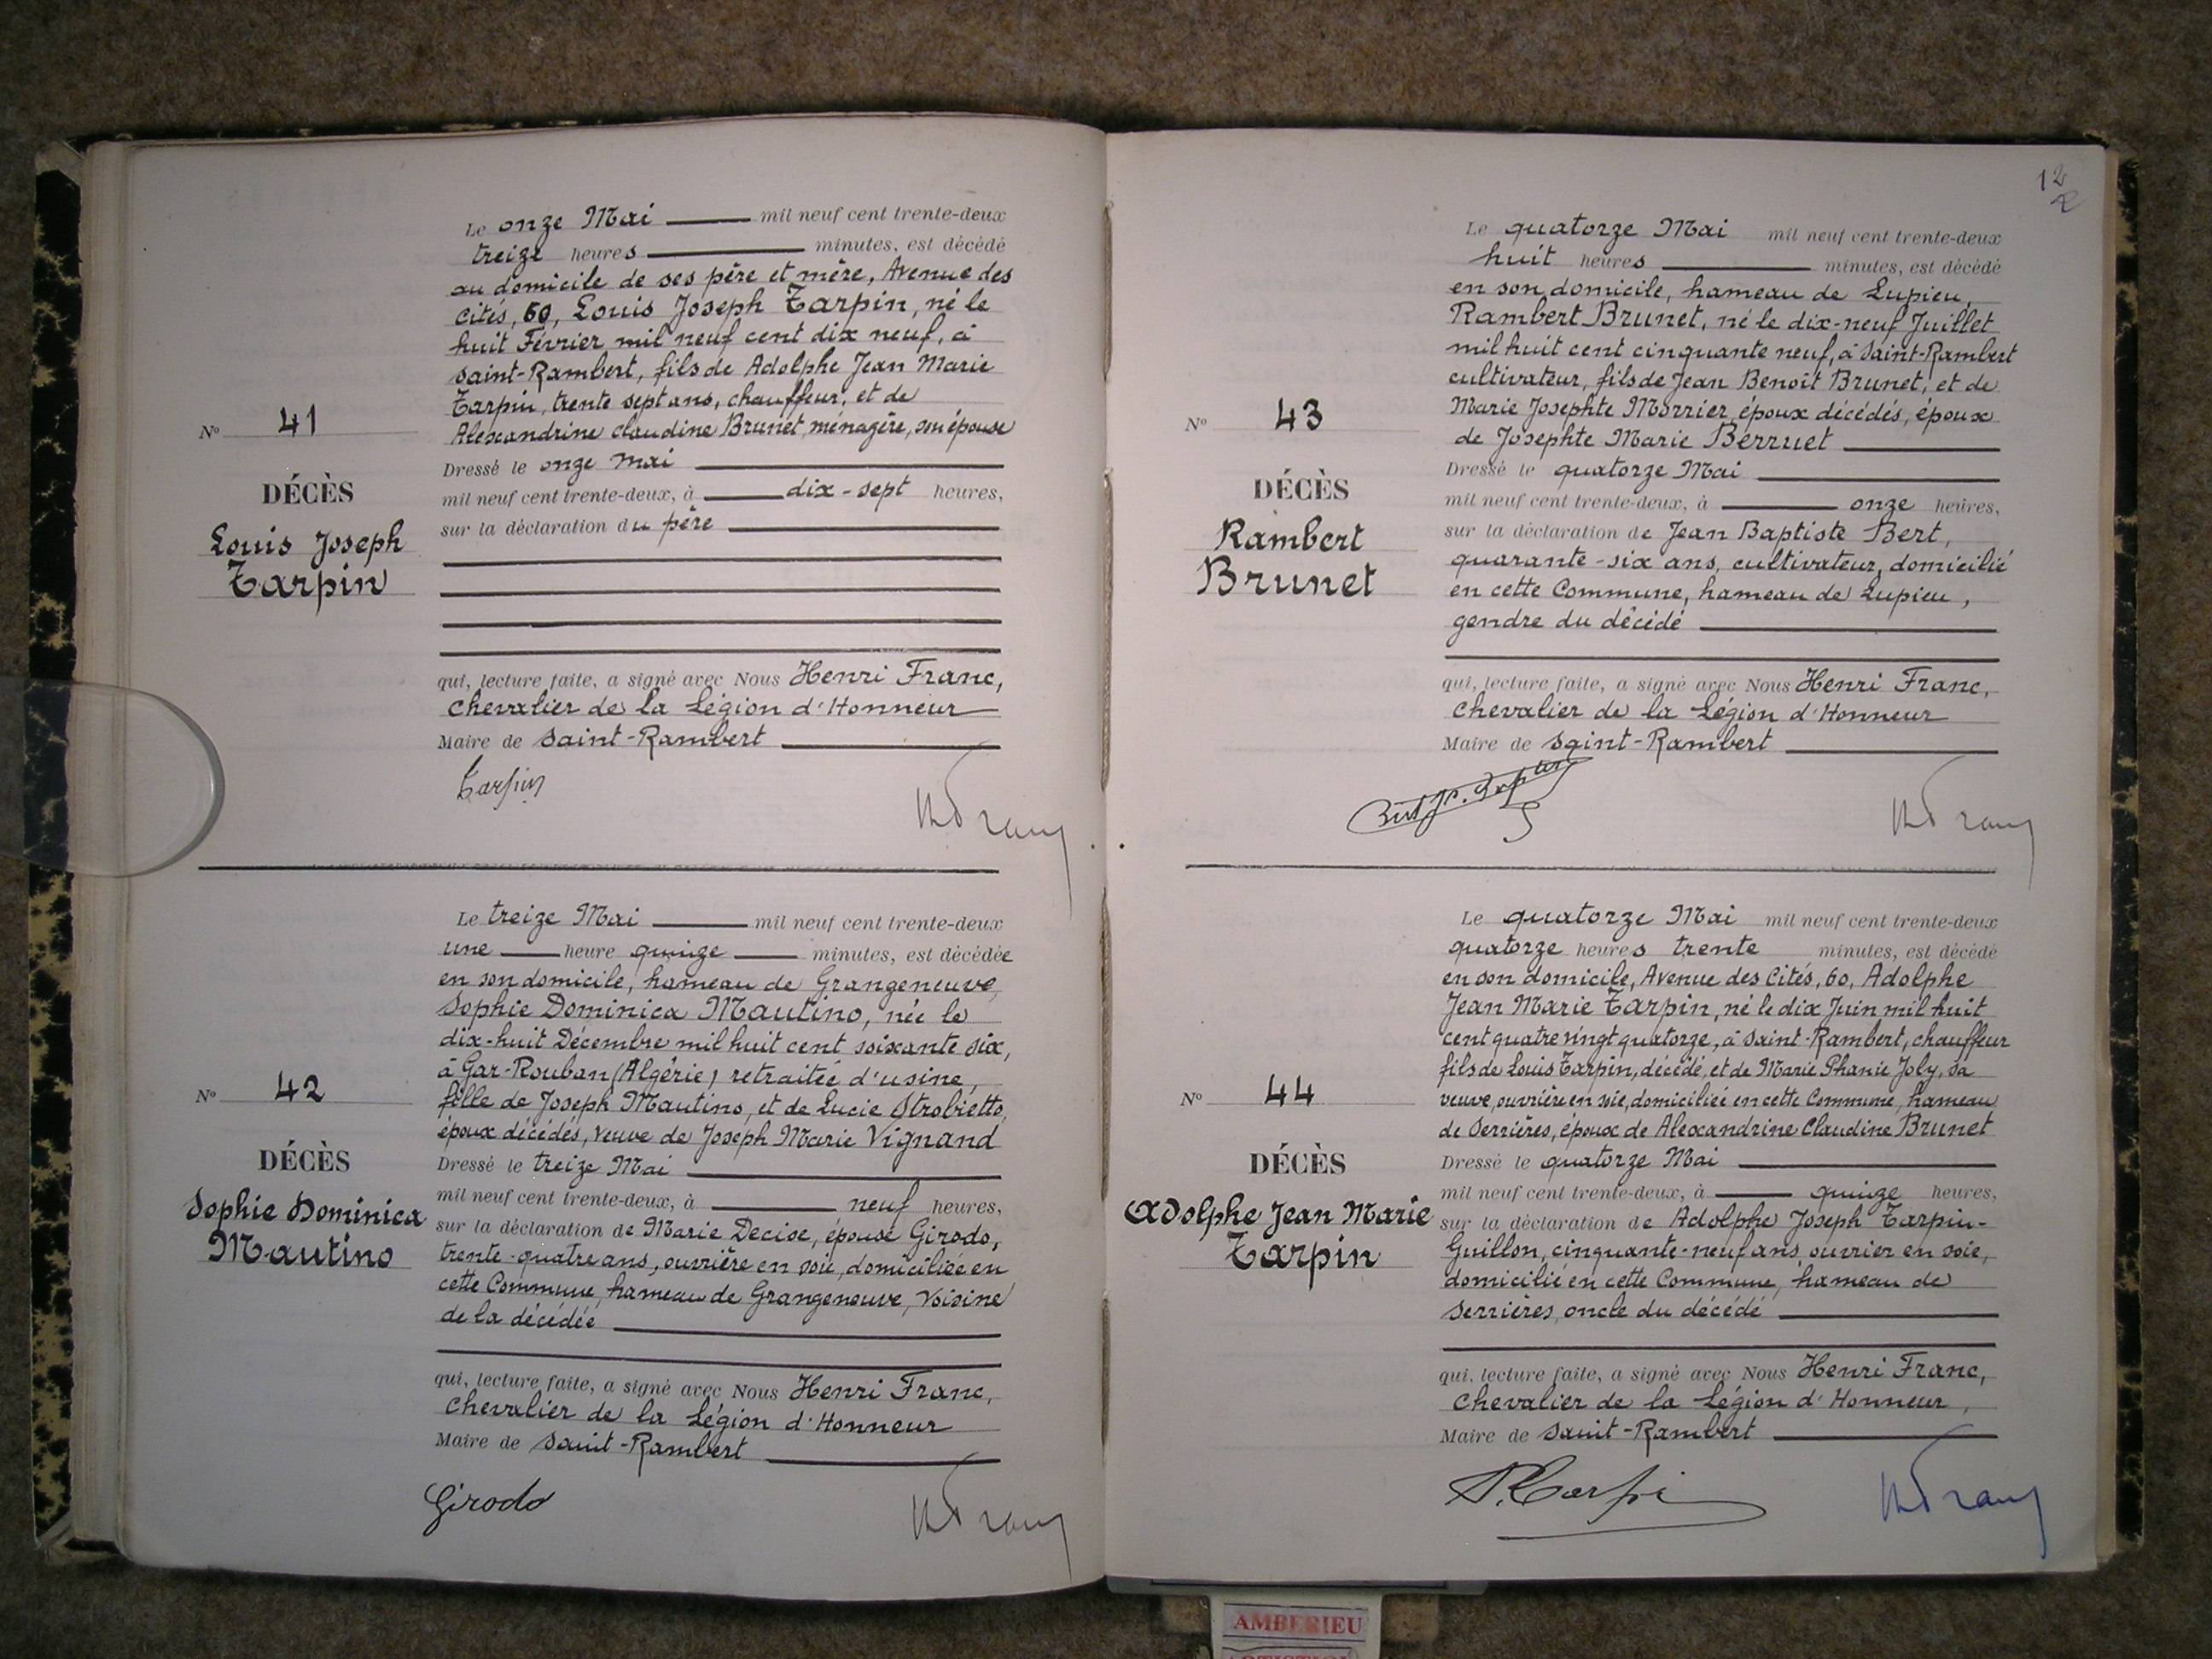 Le onze Mai mil neuf cent trente-deux
treize heures minutes, est décédé
au domicile de ses père et mère, Avenue des
Cités, 60, Louis Joseph Tarpin, né le
huit Février mil neuf cent dix neuf, à
Saint-Rambert, fils de Adolphe Jean Marie
Tarpin, trente sept ans, chauffeur, et de
Alexandrine Claudine Brunet, ménagère, son épouse
Dressé le onze mai
mil neuf cent trente-deux, à dix-sept heures,
sur la déclaration du père
qui, lecture faite, a signé avec Nous Henri Franc,
Chevalier de la Légion d'Honneur
Maire de Saint-Rambert
Tarpin
No 41
DÉCÈS
Louis Joseph
Tarpin
Le treize Mai mil neuf cent trente-deux
une heure quinze minutes, est décédée
en son domicile, hameau de Grangeneuve,
Sophie Dominica Mautino, née le
dix-huit Décembre mil huit cent soixante six,
à Gar-Rouban (Algérie) retraitée d'usine,
fille de Joseph Mautino, et de Lucie Strobietto,
époux décédés, veuve de Joseph Marie Vignand
Dressé le treize Mai
mil neuf cent trente-deux, à neuf heures,
sur la déclaration de Marie Decise, épouse Girodo,
trente-quatre ans, ouvrière en soie, domiciliée en
cette Commune, hameau de Grangeneuve, voisine
de la décédée
qui, lecture faite, a signé avec Nous Henri Franc,
Chevalier de la Légion d'Honneur
Maire de Saint-Rambert
Girodo
No 42
DÉCÈS
Sophie Dominica
Mautino
12
Le quatorze Mai mil neuf cent trente-deux
huit heures minutes, est décédé
en son domicile, hameau de Lupieu,
Rambert Brunet, né le dix-neuf Juillet
mil huit cent cinquante neuf, à Saint-Rambert
cultivateur, fils de Jean Benoît Brunet, et de
Marie Josephte Morrier, époux décédés, époux
de Josephte Marie Berruet
Dressé le quatorze Mai
mil neuf cent trente-deux, à onze heures,
sur la déclaration de Jean Baptiste Bert,
quarante-six ans, cultivateur, domicilié
en cette Commune, hameau de Lupieu,
gendre du décédé
qui, lecture faite, a signé avec Nous Henri Franc,
Chevalier de la Légion d'Honneur
Maire de Saint-Rambert
No 43
DÉCÈS
Rambert
Brunet
Le quatorze Mai mil neuf cent trente-deux
quatorze heures trente minutes, est décédé
en son domicile, Avenue des Cités, 60, Adolphe
Jean Marie Tarpin, né le dix Juin mil huit
cent quatre vingt quatorze, à Saint-Rambert, chauffeur
fils de Louis Tarpin, décédé, et de Marie Phanie Joly, sa
veuve, ouvrière en soie, domiciliée en cette Commune, hameau
de Serrières, époux de Alexandrine Claudine Brunet
Dressé le quatorze Mai
mil neuf cent trente-deux, à quinze heures,
sur la déclaration de Adolphe Joseph Tarpin-
Guillon, cinquante-neuf ans, ouvrier en soie,
domicilié en cette Commune, hameau de
Serrières, oncle du décédé
qui, lecture faite, a signé avec Nous Henri Franc,
Chevalier de la Légion d'Honneur,
Maire de Saint-Rambert
No 44
DÉCÈS
Adolphe Jean Marie
Tarpin
AMBERIEU